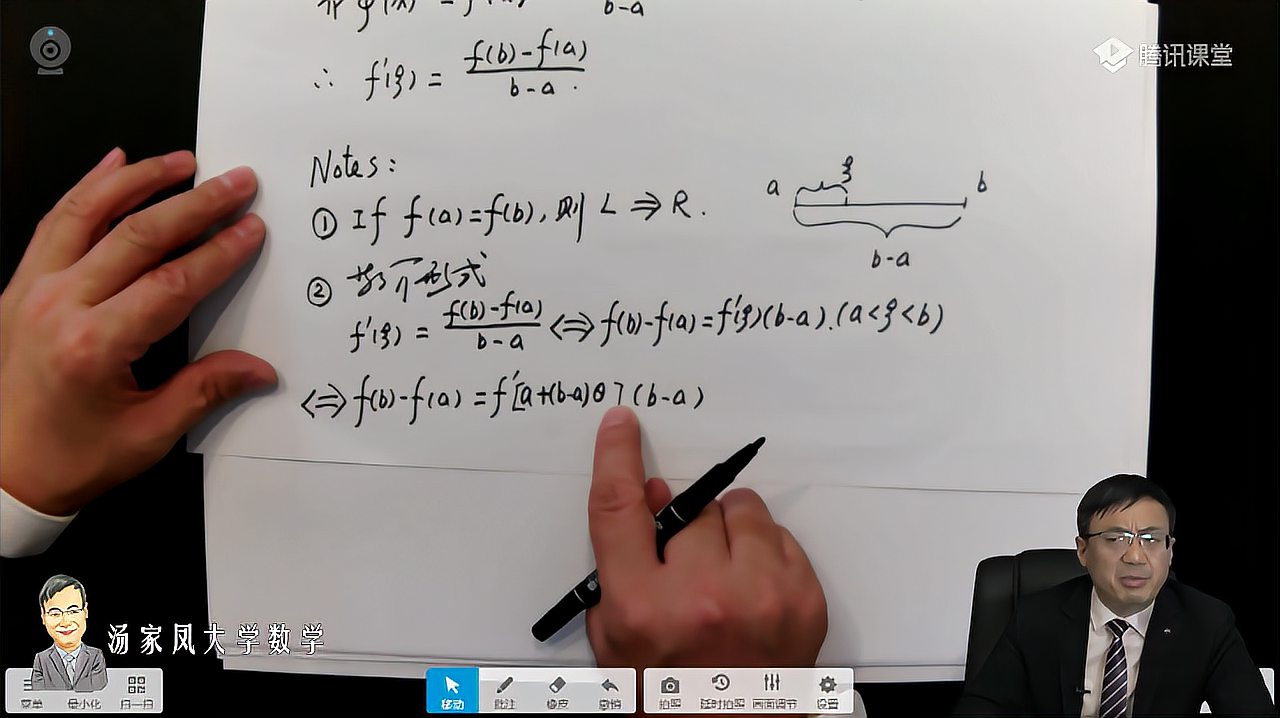 b-a
∴ f'(ξ) = \frac{f(b)-f(a)}{b-a}.
Notes:
① If f(a)=f(b), 则 L ⇒ R.
a ξ b
b-a
② 等价形式
f'(ξ) = \frac{f(b)-f(a)}{b-a} ⇔ f(b)-f(a)=f'(ξ)(b-a). (a<ξ<b)
⇔ f(b)-f(a) = f'[a+(b-a)θ](b-a)
腾讯课堂
汤家凤大学数学
菜单 最小化 扫一扫 移动 批注 橡皮 撤销 拍照 延时拍照 画面调节 设置